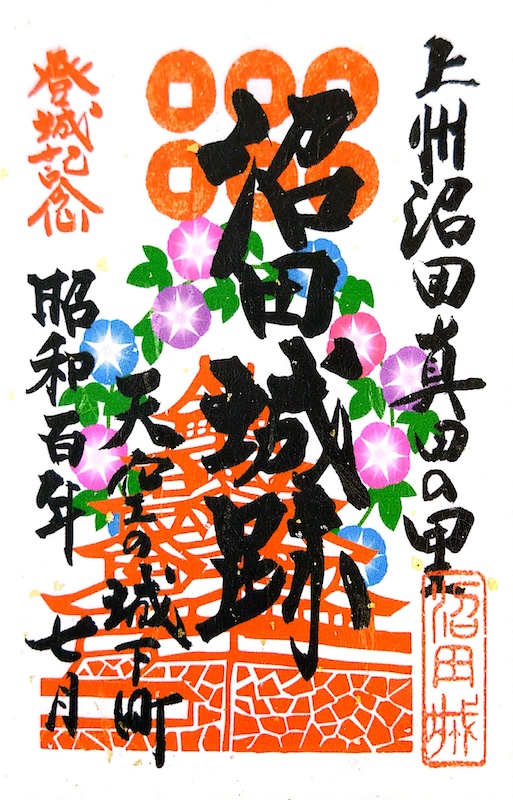 上州沼田真田の里
沼田城跡
天空の城下町
登城記念
昭和百年
七月
沼田城